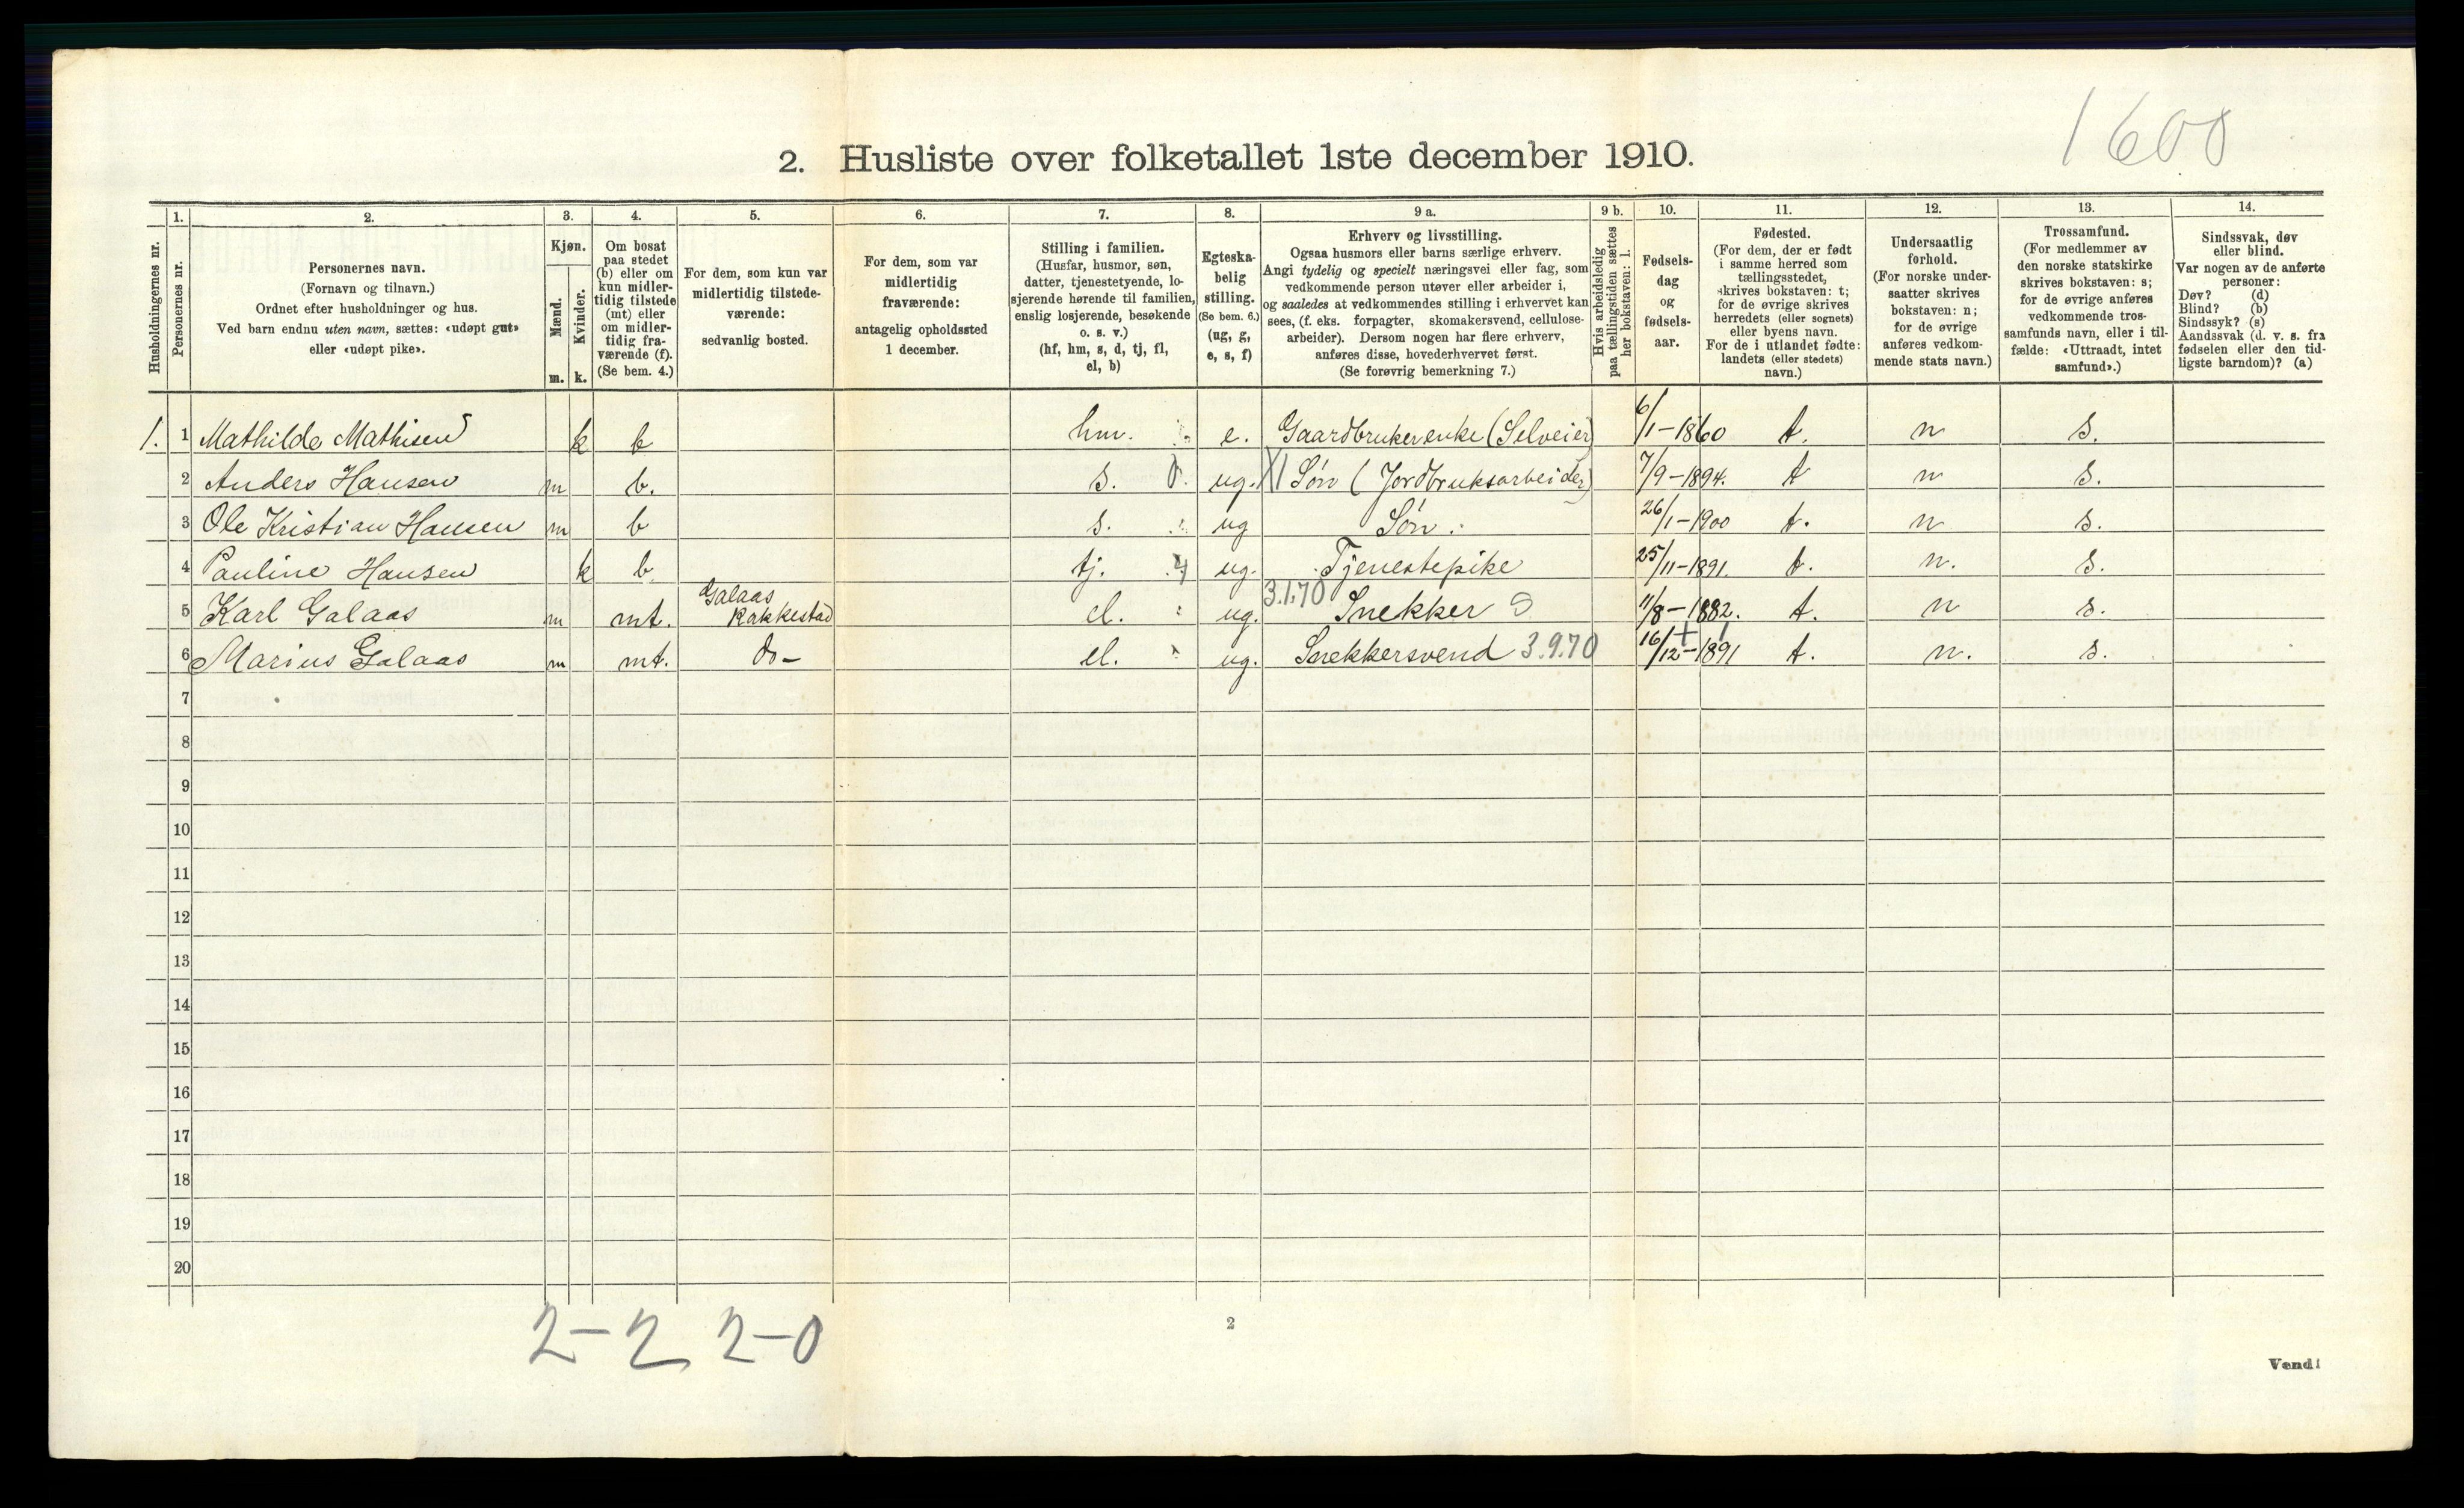 1600
2. Husliste over folketallet 1ste december 1910.
Husholdningernes nr.
1. Personernes nr.
2. Personernes navn.
(Fornavn og tilnavn.)
Ordnet efter husholdninger og hus.
Ved barn endnu uten navn, sættes: «udøpt gut»
eller «udøpt pike».
3. Kjøn.
Mænd. m.
Kvinder. k.
4. Om bosat
paa stedet
(b) eller om
kun midler-
tidig tilstede
(mt) eller
om midler-
tidig fra-
værende (f).
(Se bem. 4.)
5. For dem, som kun var
midlertidig tilstede-
værende:
sedvanlig bosted.
6. For dem, som var
midlertidig
fraværende:
antagelig opholdssted
1 december.
7. Stilling i familien.
(Husfar, husmor, søn,
datter, tjenestetyende, lo-
sjerende hørende til familien,
enslig losjerende, besøkende
o. s. v.)
(hf, hm, s, d, tj, fl,
el, b)
8. Egteska-
belig
stilling.
(Se bem. 6.)
(ug, g,
e, s, f)
9 a. Erhverv og livsstilling.
Ogsaa husmors eller barns særlige erhverv.
Angi tydelig og specielt næringsvei eller fag, som
vedkommende person utøver eller arbeider i,
og saaledes at vedkommendes stilling i erhvervet kan
sees, (f. eks. forpagter, skomakersvend, cellulose-
arbeider). Dersom nogen har flere erhverv,
anføres disse, hovederhvervet først.
(Se forøvrig bemerkning 7.)
9 b. Hvis arbeidsledig
paa tællingstiden sættes
her bokstaven: l.
10. Fødsels-
dag
og
fødsels-
aar.
11. Fødested.
(For dem, der er født
i samme herred som
tællingsstedet,
skrives bokstaven: t;
for de øvrige skrives
herredets (eller sognets)
eller byens navn.
For de i utlandet fødte:
landets (eller stedets)
navn.)
12. Undersaatlig
forhold.
(For norske under-
saatter skrives
bokstaven: n;
for de øvrige
anføres vedkom-
mende stats navn.)
13. Trossamfund.
(For medlemmer av
den norske statskirke
skrives bokstaven: s;
for de øvrige anføres
vedkommende tros-
samfunds navn, eller i til-
fælde: «Uttraadt, intet
samfund».)
14. Sindssvak, døv
eller blind.
Var nogen av de anførte
personer:
Døv? (d)
Blind? (b)
Sindssyk? (s)
Aandssvak (d. v. s. fra
fødselen eller den tid-
ligste barndom)? (a)
1. 1 Mathilde Mathisen k b hm. e. Gaardbrukerenke (Selveier) 6/1-1860 t. n s.
2 Anders Hansen m b. s. 0. ug. X1 Søn (Jordbruksarbeider) 7/9-1894. t n s.
3 Ole Kristian Hansen m b s. ug Søn. 26/1-1900 t. n s.
4 Pauline Hansen k b. tj. ug. Tjenestepike 25/11-1891. t. n. s.
5 Karl Galaas m mt. Galaas Rakkestad el. ug. 3.1.70 Snekker 11/8-1882. t. n s.
6 Marius Galaas m mt. do- el. ug. Snekkersvend 3.9.70 16/12-1891 t. n. s.
7
8
9
10
11
12
13
14
15
16
17
18
19
20
2-2 2-0
2
Vend!